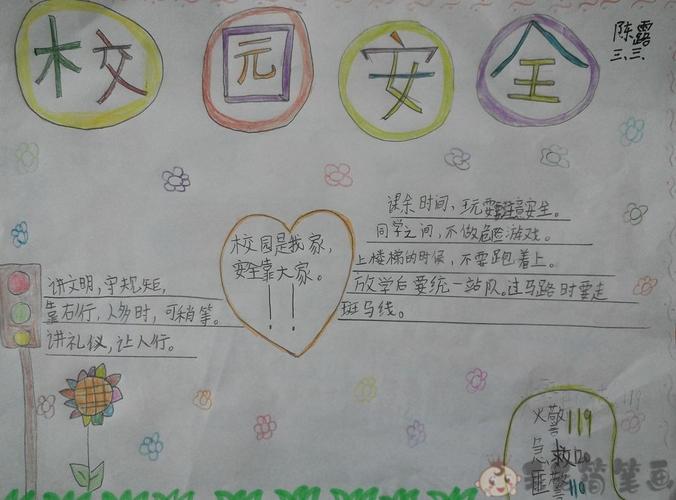 校园安全
陈露
三、三、
课余时间，玩要注意安全。
同学之间，不做危险游戏。
上楼梯的时候，不要跑着上。
放学后要统一站队。过马路时要走
斑马线。
校园是我家，
安全靠大家。
！！
讲文明，守规矩，
靠右行，人多时，可稍等。
讲礼仪，让人行。
火警119
急救120
匪警110
简笔画